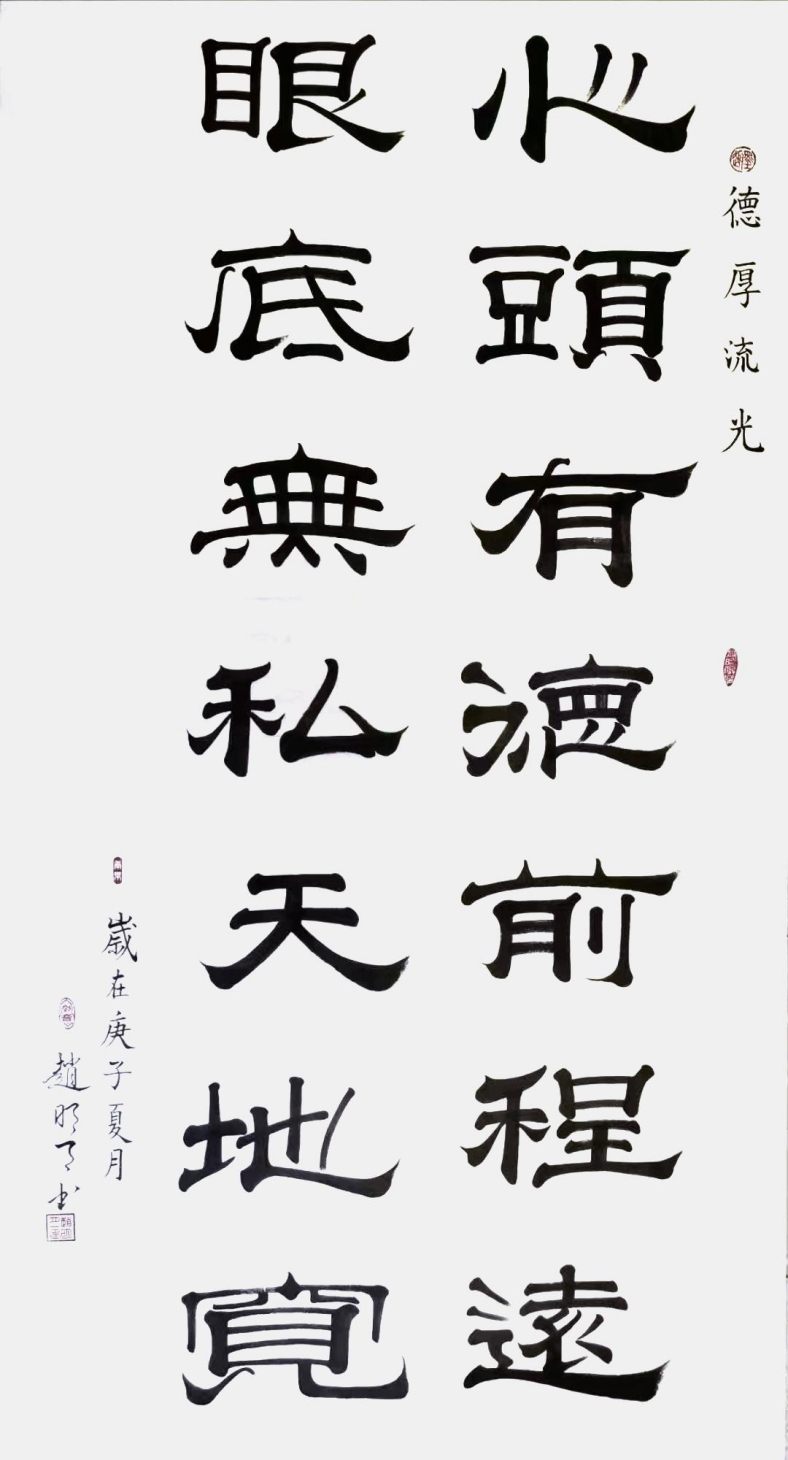 德厚流光
心頭有德前程遠
眼底無私天地寬
歲在庚子夏月
趙明 書